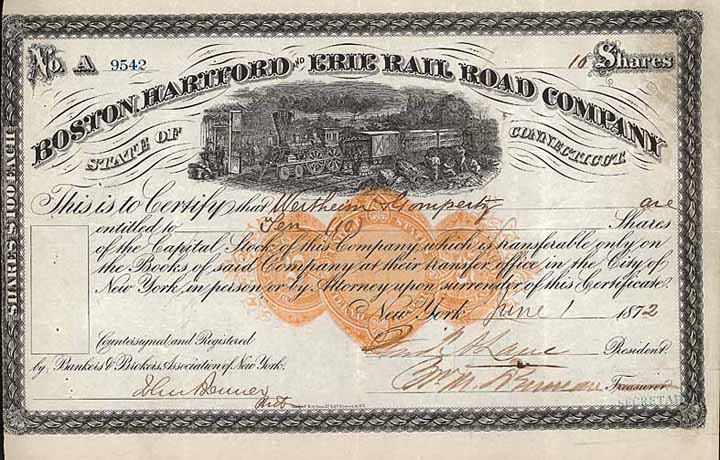 No A 9542 10 Shares
BOSTON, HARTFORD AND ERIE RAIL ROAD COMPANY
STATE OF CONNECTICUT.
SHARES $100 EACH
This is to Certify that Wertheim & Gompertz are
entitled to Ten (10) Shares
of the Capital Stock of this Company which is transferable only on
the Books of said Company at their transfer office in the City of
New York, in person or by Attorney upon surrender of this Certificate.
New York June 1 1872
Countersigned and Registered
by Bankers & Brokers Association of New York.
President.
John Bonner
Treasurer
SECRETA